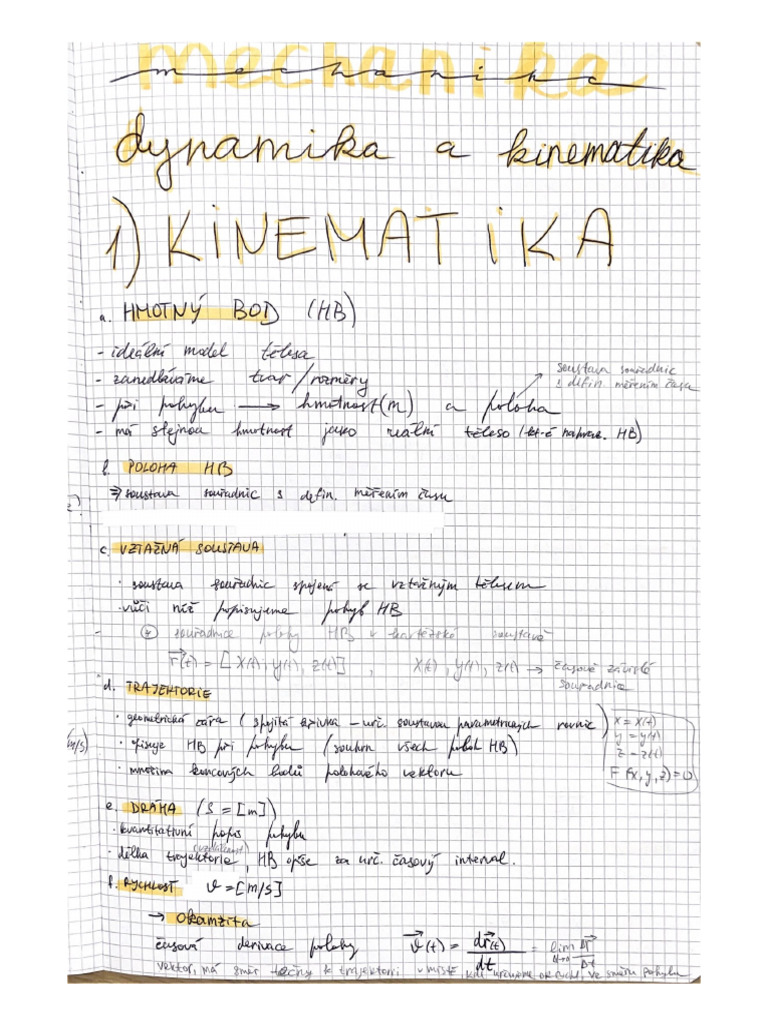 mechanika
mechanika
dynamika a kinematika
1) KINEMATIKA
a. HMOTNÝ BOD (HB)
- ideální model tělesa
- zanedbáváme tvar/rozměry
soustava souřadnic
s defin. měřením času
- při pohybu → hmotnost(m) a poloha
- má stejnou hmotnost jako reálné těleso (kt-é nahraz. HB)
b. POLOHA HB
⇒ soustava souřadnic s defin. měřením času
c. VZTAŽNÁ SOUSTAVA
· soustava souřadnic spojená se vztažným tělesem
· vůči níž popisujeme pohyb HB
souřadnice polohy HB v kartézské soustavě
r(t) = [x(t), y(t), z(t)], x(t), y(t), z(t) → časově závislé
souřadnice
d. TRAJEKTORIE
· geometrická čára (spojitá křivka - urč. soustavou parametrických rovnic)
x = x(t)
y = y(t)
z = z(t)
F(x, y, z) = 0
· opisuje HB při pohybu (souhrn všech poloh HB)
(m/s)
· množina koncových bodů polohového vektoru
e. DRÁHA (s = [m])
· kvantitativní popis pohybu
(vzdálenost)
· délka trajektorie, HB opíše za urč. časový interval.
f. RYCHLOST v = [m/s]
→ okamžitá
časová derivace polohy v(t) = dr(t)/dt = lim Δt→0 Δr/Δt
vektor, má směr tečny k trajektorii v místě, kde určujeme ok. rychl, ve směru pohybu